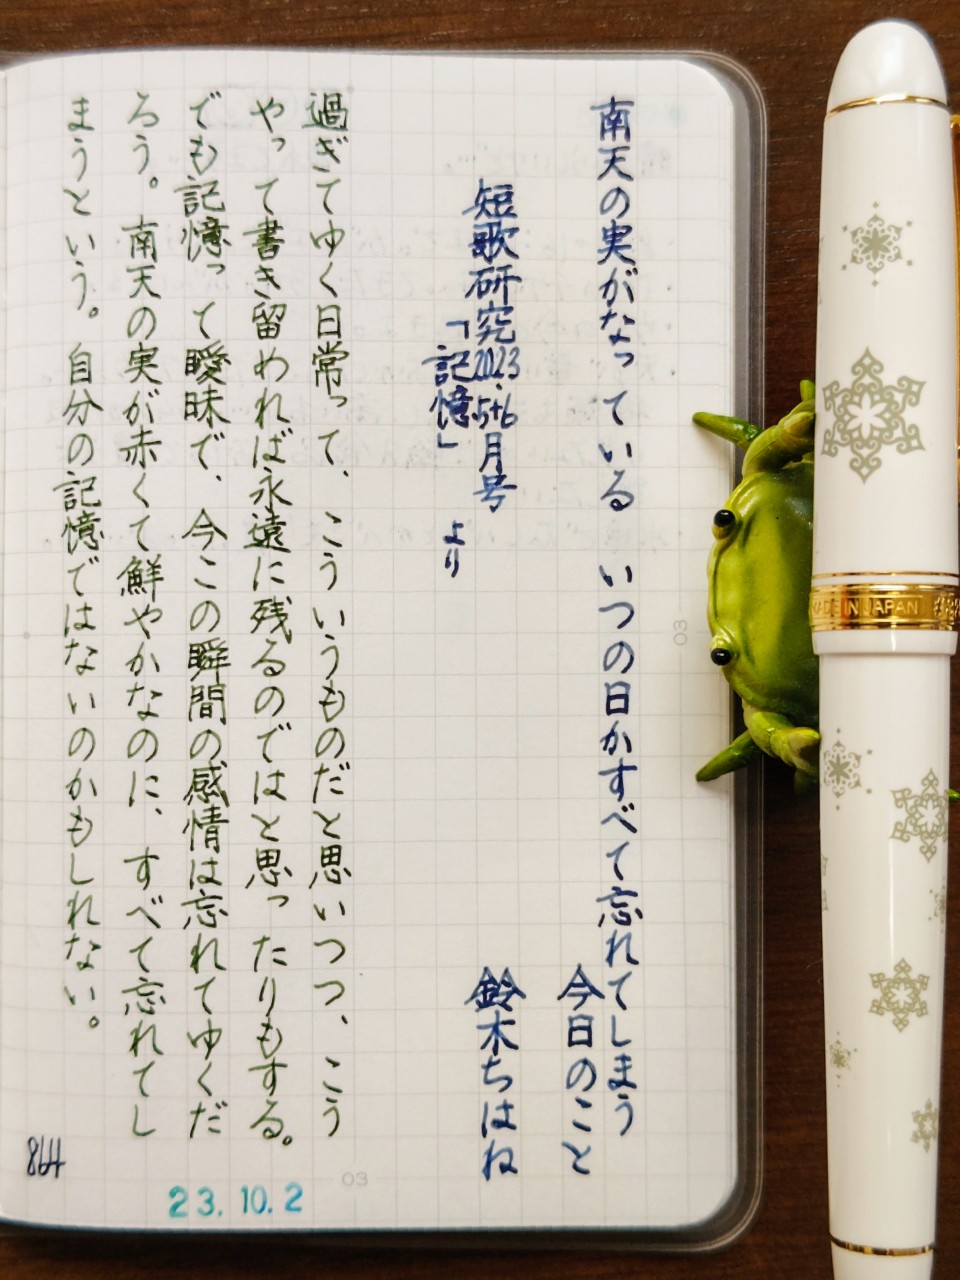 南天の実がなっている いつの日かすべて忘れてしまう
今日のこと
短歌研究2023.5+6月号
鈴木ちはね
「記憶」 より
過ぎてゆく日常って、こういうものだと思いつつ、こう
やって書き留めれば永遠に残るのではと思ったりもする。
でも記憶って曖昧で、今この瞬間の感情は忘れてゆくだ
ろう。南天の実が赤くて鮮やかなのに、すべて忘れてし
まうという。自分の記憶ではないのかもしれない。
23.10.2
03
03
MADE IN JAPAN